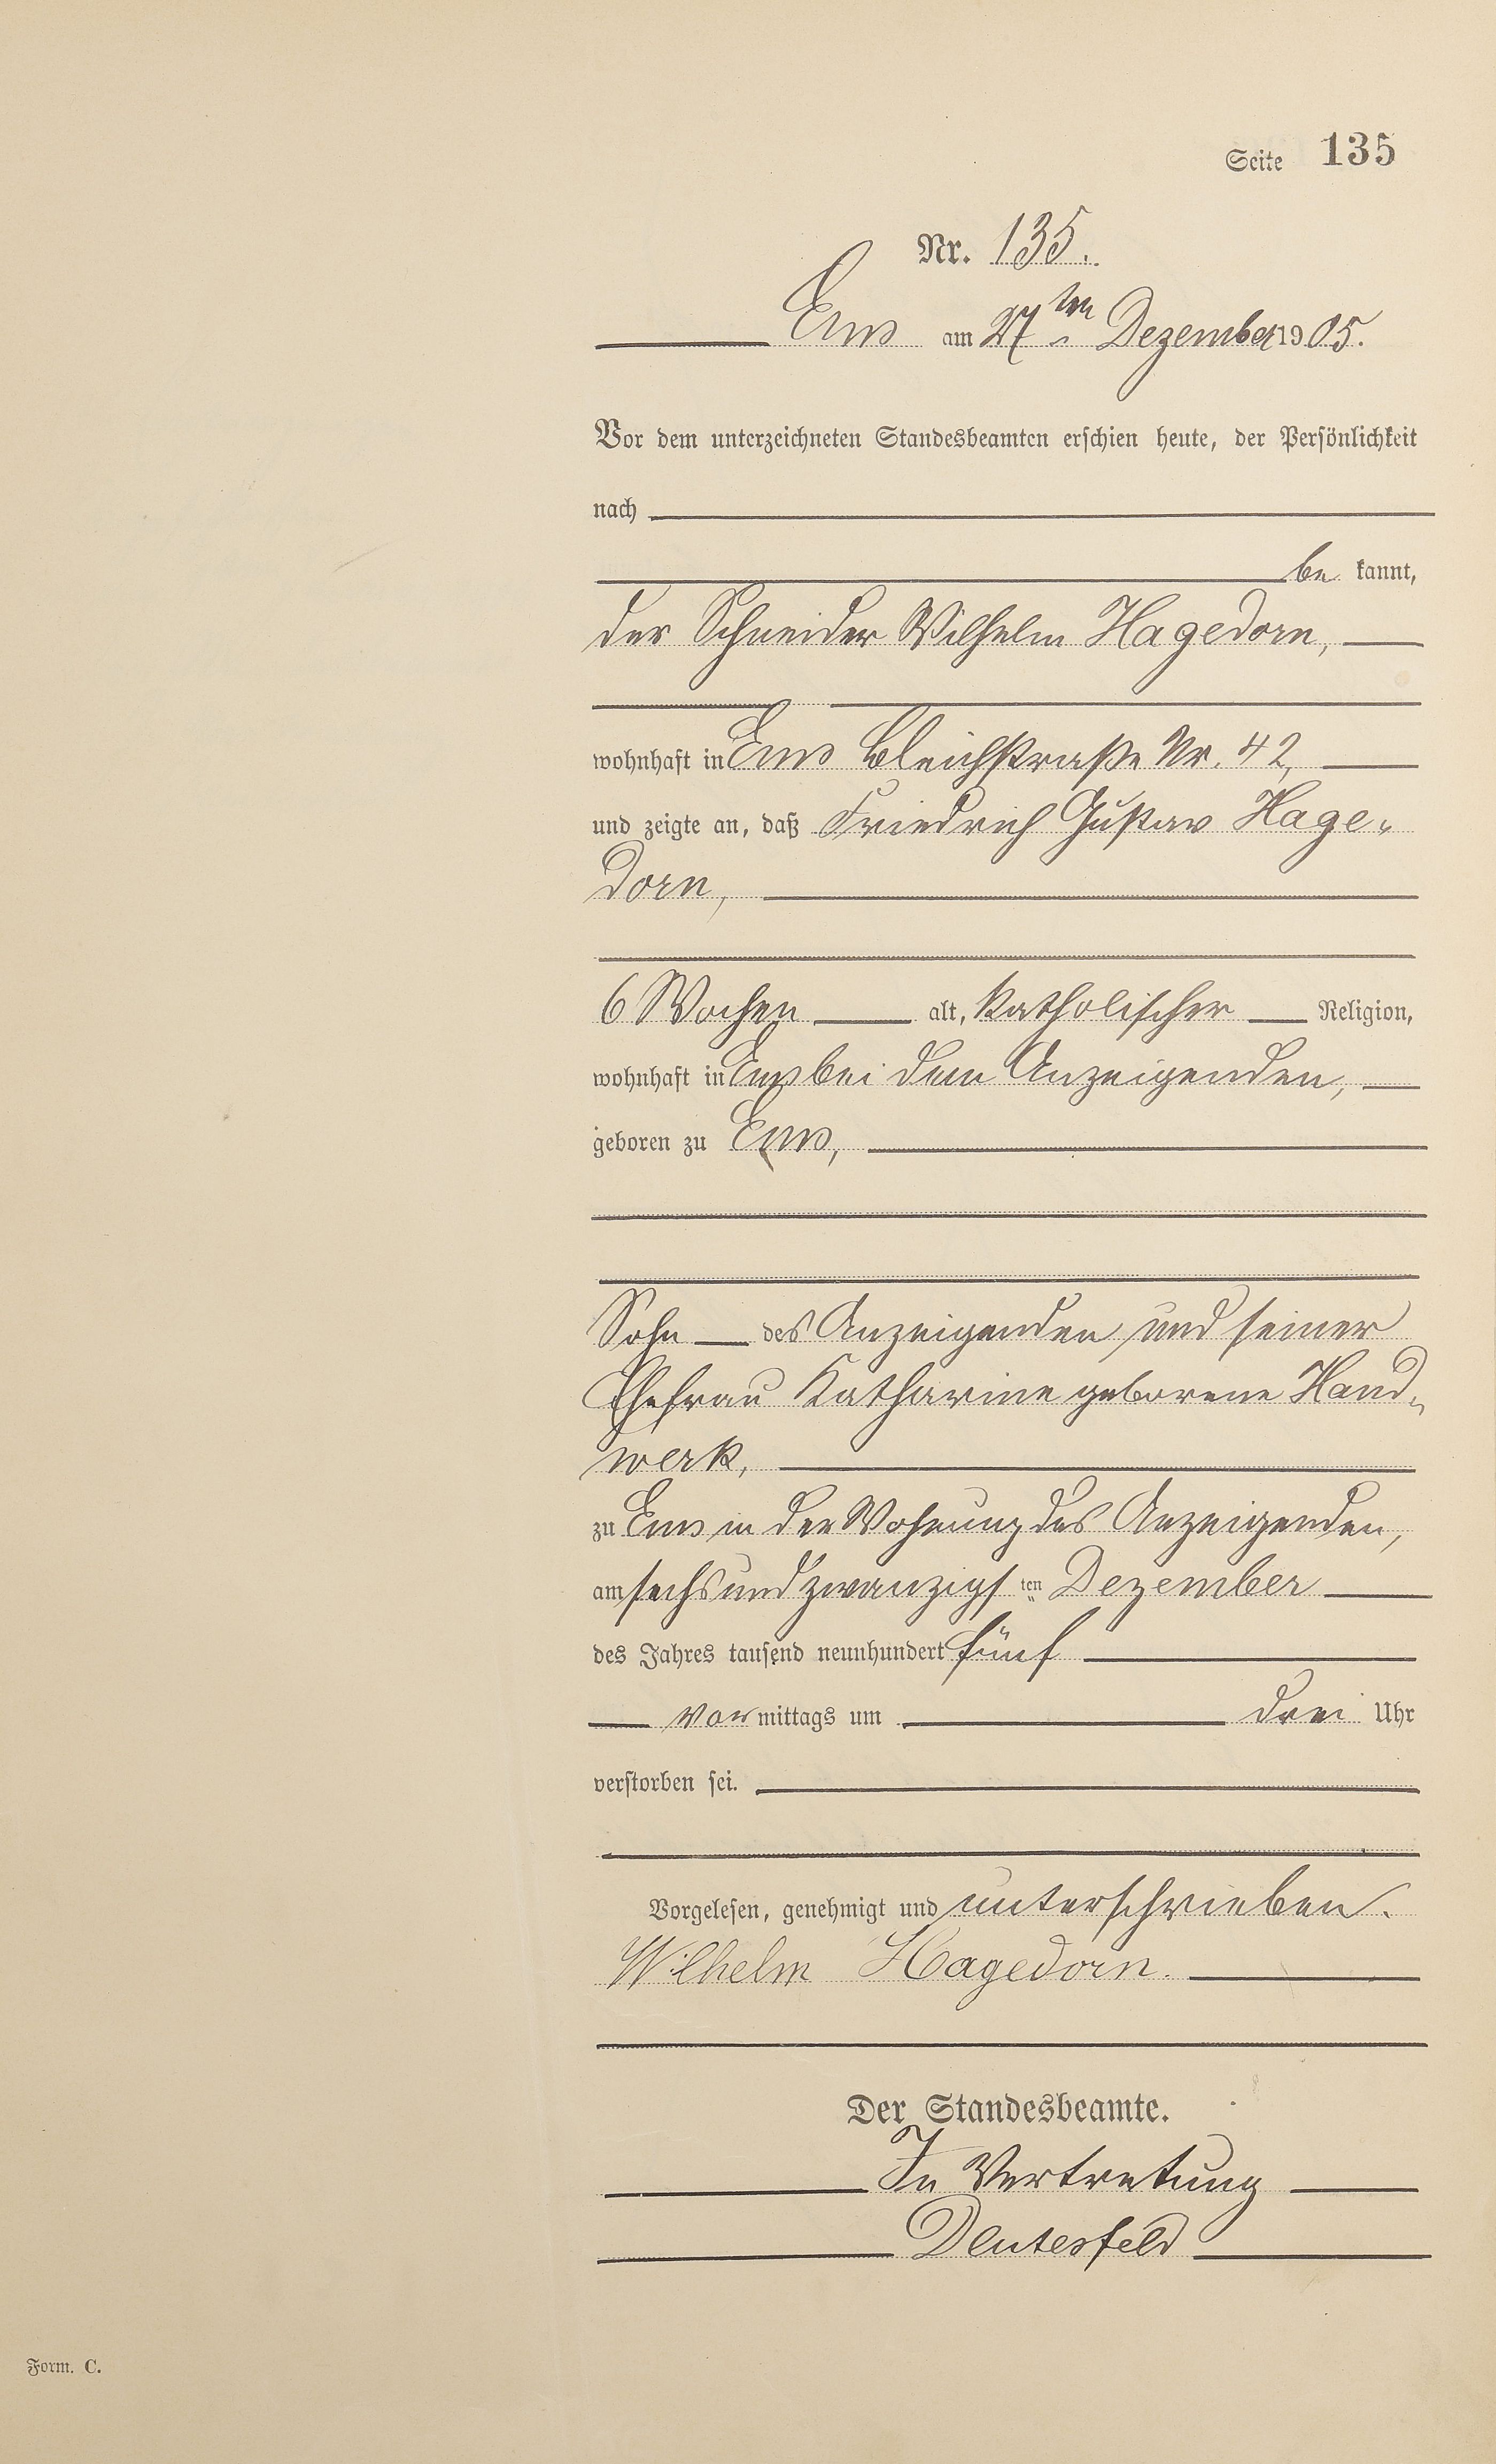 Seite 135
Nr. 135.
Ems am 27ten Dezember 1905.
Vor dem unterzeichneten Standesbeamten erschien heute, der Persönlichkeit
nach
be kannt,
der Schneider Wilhelm Hagedorn,
wohnhaft in Ems Bleichstraße Nr. 42,
und zeigte an, daß Friedrich Gustav Hage-
dorn,
6 Wochen alt, katholischer Religion,
wohnhaft in Ems bei dem Anzeigenden,
geboren zu Ems,
Sohn des Anzeigenden und seiner
Ehefrau Katharine geborene Hand-
werk,
zu Ems in der Wohnung des Anzeigenden,
am sechsundzwanzigsten Dezember
des Jahres tausend neunhundert fünf
vormittags um drei Uhr
verstorben sei.
Vorgelesen, genehmigt und unterschrieben.
Wilhelm Hagedorn.
Der Standesbeamte.
In Vertretung
Deutesfeld
Form. C.